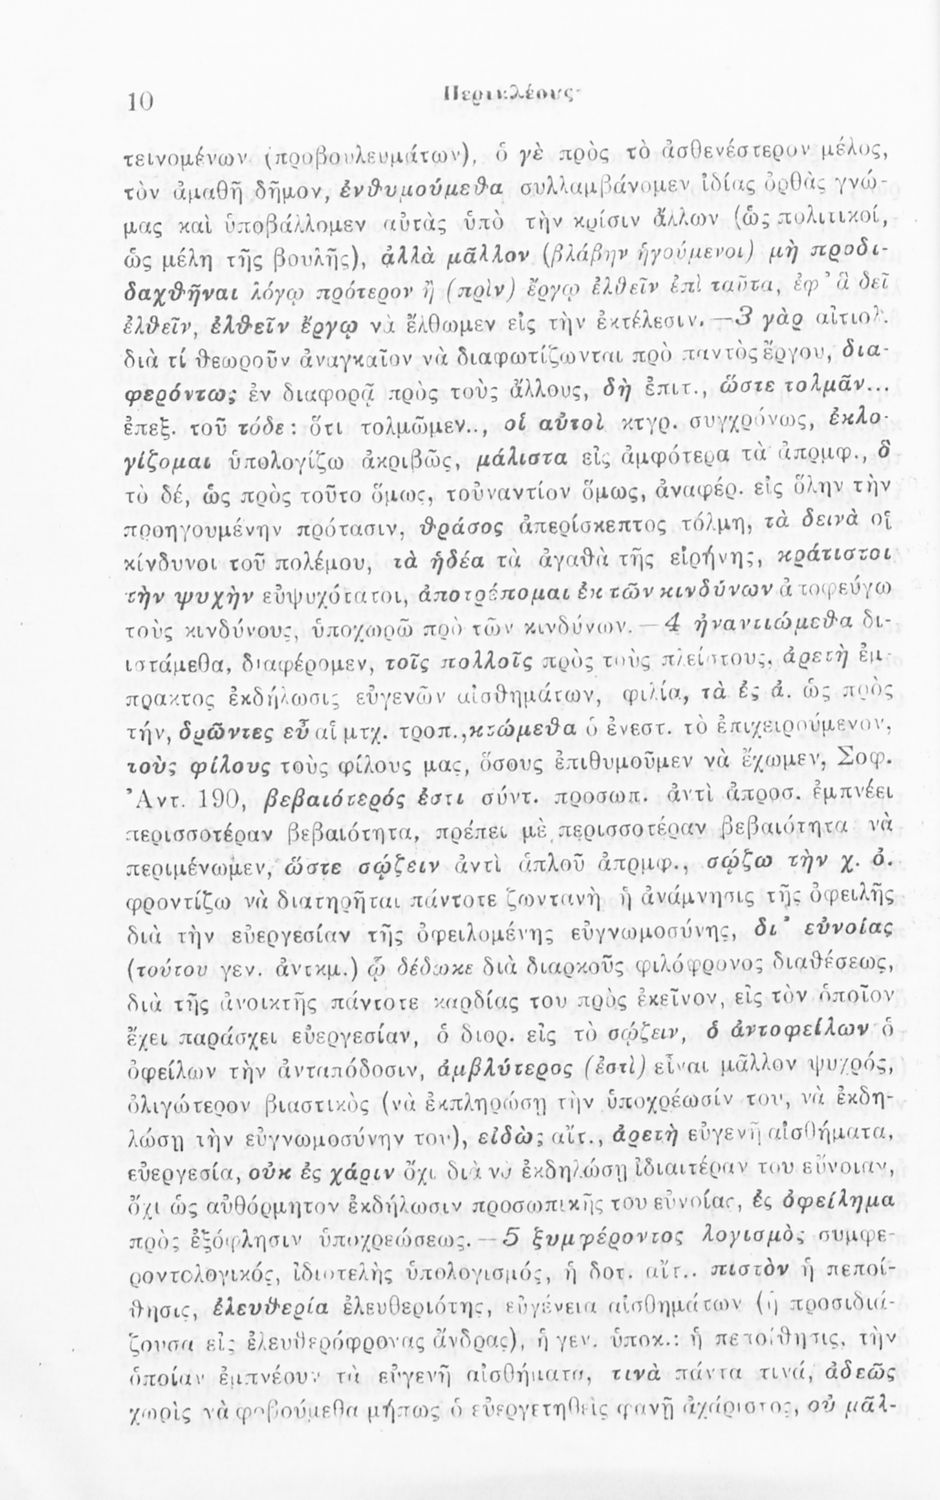 10
Περικλέους
τεινομένων (προβουλευμάτων), ὁ γὲ πρὸς τὸ ἀσθενέστερον μέλος,
τὸν ἀμαθῆ δῆμον, ἐνθυμούμεθα συλλαμβάνομεν ἰδίας ὀρθὰς γνώ-
μας καὶ ὑποβάλλομεν αὐτὰς ὑπὸ τὴν κρίσιν ἄλλων (ὡς πολιτικοί,
ὡς μέλη τῆς βουλῆς), ἀλλὰ μᾶλλον (βλάβην ἡγούμενοι) μὴ προδι-
δαχθῆναι λόγῳ πρότερον ἢ (πρὶν) ἔργῳ ἐλθεῖν ἐπὶ ταῦτα, ἐφ' ἃ δεῖ
ἐλθεῖν, ἐλθεῖν ἔργῳ νὰ ἔλθωμεν εἰς τὴν ἐκτέλεσιν. —3 γὰρ αἰτιολ.
διὰ τί θεωροῦν ἀναγκαῖον νὰ διαφωτίζωνται πρὸ παντὸς ἔργου, δια-
φερόντως ἐν διαφορᾷ πρὸς τοὺς ἄλλους, δὴ ἐπιτ., ὥστε τολμᾶν...
ἐπεξ. τοῦ τόδε: ὅτι τολμῶμεν.., οἱ αὐτοὶ κτγρ. συγχρόνως, ἐκλο-
γίζομαι ὑπολογίζω ἀκριβῶς, μάλιστα εἰς ἀμφότερα τὰ ἀπρμφ., ὃ
τὸ δέ, ὡς πρὸς τοῦτο ὅμως, τοὐναντίον ὅμως, ἀναφέρ. εἰς ὅλην τὴν
προηγουμένην πρότασιν, θράσος ἀπερίσκεπτος τόλμη, τὰ δεινὰ οἱ
κίνδυνοι τοῦ πολέμου, τὰ ἡδέα τὰ ἀγαθὰ τῆς εἰρήνης, κράτιστοι
τὴν ψυχὴν εὐψυχότατοι, ἀποτρέπομαι ἐκ τῶν κινδύνων ἀποφεύγω
τοὺς κινδύνους, ὑποχωρῶ πρὸ τῶν κινδύνων. —4 ἠναντιώμεθα δι-
ιστάμεθα, διαφέρομεν, τοῖς πολλοῖς πρὸς τοὺς πλείστους, ἀρετὴ ἔμ-
πρακτος ἐκδήλωσις εὐγενῶν αἰσθημάτων, φιλία, τὰ ἐς ἀ. ὡς πρὸς
τήν, δρῶντες εὖ αἱ μτχ. τροπ., κτώμεθα ὁ ἐνεστ. τὸ ἐπιχειρούμενον,
τοὺς φίλους τοὺς φίλους μας, ὅσους ἐπιθυμοῦμεν νὰ ἔχωμεν, Σοφ.
Ἀντ. 190, βεβαιότερός ἐστι σύντ. προσωπ. ἀντὶ ἀπροσ. ἐμπνέει
περισσοτέραν βεβαιότητα, πρέπει μὲ περισσοτέραν βεβαιότητα νὰ
περιμένωμεν, ὥστε σῴζειν ἀντὶ ἁπλοῦ ἀπρμφ., σῴζω τὴν χ. ὀ.
φροντίζω νὰ διατηρῆται πάντοτε ζωντανὴ ἡ ἀνάμνησις τῆς ὀφειλῆς
διὰ τὴν εὐεργεσίαν τῆς ὀφειλομένης εὐγνωμοσύνης, δι' εὐνοίας
(τούτου γεν. ἀντκμ.) ᾧ δέδωκε διὰ διαρκοῦς φιλόφρονος διαθέσεως,
διὰ τῆς ἀνοικτῆς πάντοτε καρδίας του πρὸς ἐκεῖνον, εἰς τὸν ὁποῖον
ἔχει παράσχει εὐεργεσίαν, ὁ διορ. εἰς τὸ σῴζειν, ὁ ἀντοφείλων ὁ
ὀφείλων τὴν ἀνταπόδοσιν, ἀμβλύτερος (ἐστὶ) εἶναι μᾶλλον ψυχρός,
ὀλιγώτερον βιαστικὸς (νὰ ἐκπληρώσῃ τὴν ὑποχρέωσίν του, νὰ ἐκδη-
λώσῃ τὴν εὐγνωμοσύνην του), εἰδὼς αἰτ., ἀρετὴ εὐγενῆ αἰσθήματα,
εὐεργεσία, οὐκ ἐς χάριν ὄχι διὰ νὰ ἐκδηλώσῃ ἰδιαιτέραν του εὔνοιαν,
ὄχι ὡς αὐθόρμητον ἐκδήλωσιν προσωπικῆς του εὐνοίας, ἐς ὀφείλημα
πρὸς ἐξόφλησιν ὑποχρεώσεως. —5 ξυμφέροντος λογισμὸς συμφε-
ροντολογικός, ἰδιοτελὴς ὑπολογισμός, ἡ δοτ. αἰτ., πιστὸν ἡ πεποί-
θησις, ἐλευθερία ἐλευθεριότης, εὐγένεια αἰσθημάτων (ἡ προσιδιά-
ζουσα εἰς ἐλευθερόφρονας ἄνδρας), ἡ γεν. ὑποκ.: ἡ πεποίθησις, τὴν
ὁποίαν ἐμπνέουν τὰ εὐγενῆ αἰσθήματα, τινὰ πάντα τινά, ἀδεῶς
χωρὶς νὰ φοβούμεθα μήπως ὁ εὐεργετηθεὶς φανῇ ἀχάριστος, οὐ μᾶλ-